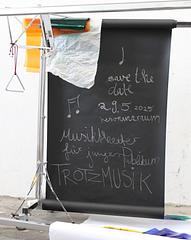 save the
date
29.5 2025
resonanzraum
Musiktheater
für junges Publikum
TROTZMUSIK